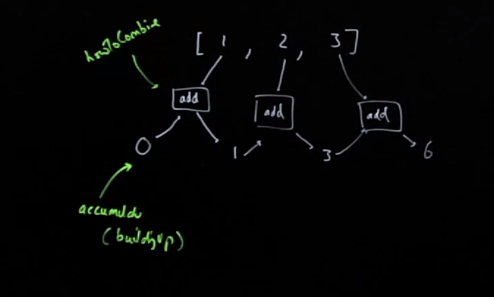 howToCombine
[ 1 , 2 , 3 ]
add add add
0 1 3 6
accumulator
(buildingUp)